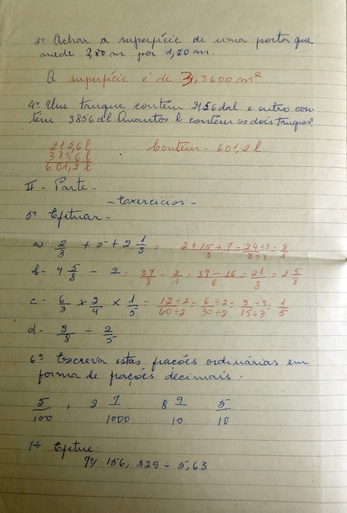 3º Achar a superfície de uma porta que
mede 2,80 m por 1,20 m.
A superfície é de 3,3600 m²
4º Um tanque contém 2156 dal e outro con-
tém 3856 dl Quantos l contém os dois tanques
212,6 l
385,6 l
601,2 l
Contém - 601,2 l
II - Parte -
- Exercícios -
5º Efetuar -
a) 2/3 + 5 + 2 1/3 = 2 + 15 + 7 / 3 - 24 ÷ 3 / 3 ÷ 3 = 8/1
b - 4 5/8 - 2 = 37/8 - 2/1 = 37 - 16 / 8 = 21/8 = 2 5/8
c - 6/3 x 2/4 x 1/5 = 12 ÷ 2 / 60 ÷ 2 = 6 ÷ 2 / 30 ÷ 2 = 3 ÷ 3 / 15 ÷ 3 = 1/5
d - 3/8 ÷ 2/5
6º Escreva estas frações ordinárias em
forma de frações decimais.
5/100 , 2 7/1000 8 9/10 5/10
Efetue:
156,329 ÷ 5,63